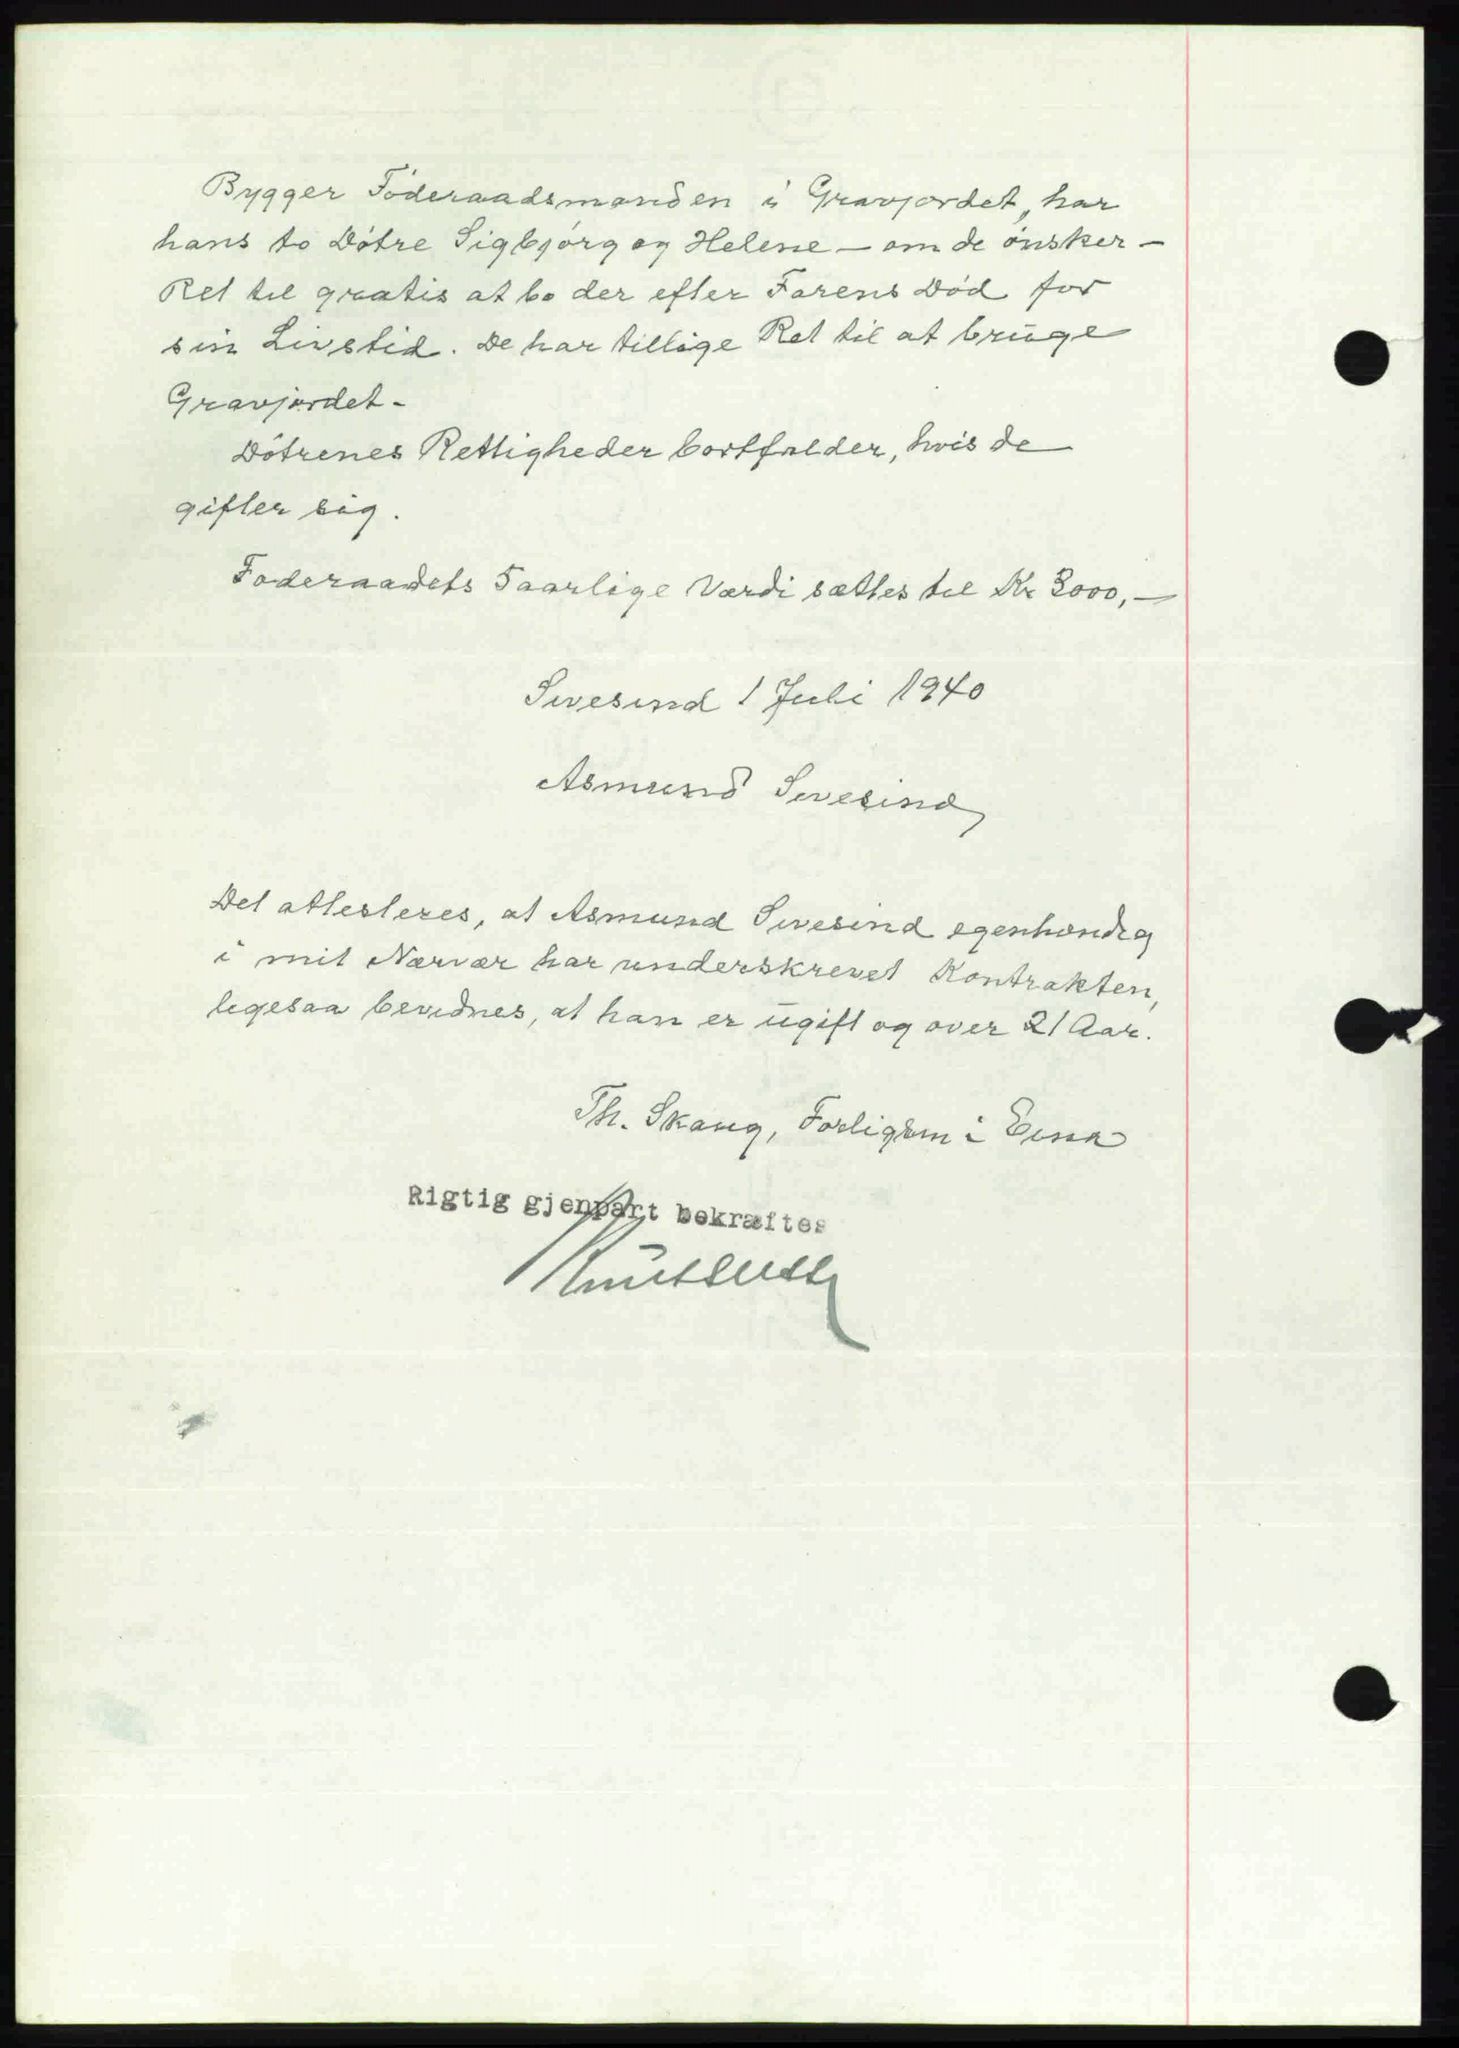 Bygger Föderaadsmanden i Gravjordet, har
hans to Døtre Sigbjørg og Helene – om de ønsker –
Ret til gratis at bo der efter Farens Død for
sin Livstid. De har tillige Ret til at bruge
Gravjordet –
Døtrenes Rettigheder bortfalder, hvis de
gifter sig.
Foderaadets 5aarlige Værdi sættes til Kr 3000,–
Sivesind 1 Juli 1940
Asmund Sivesind
Det attesteres, at Asmund Sivesind egenhændig
i mit Nærvær har underskrevet Kontrakten,
ligesaa bevidnes, at han er ugift og over 21 Aar.
Th. Skaug, Forligsm i Eina
Rigtig gjenpart bekræftes